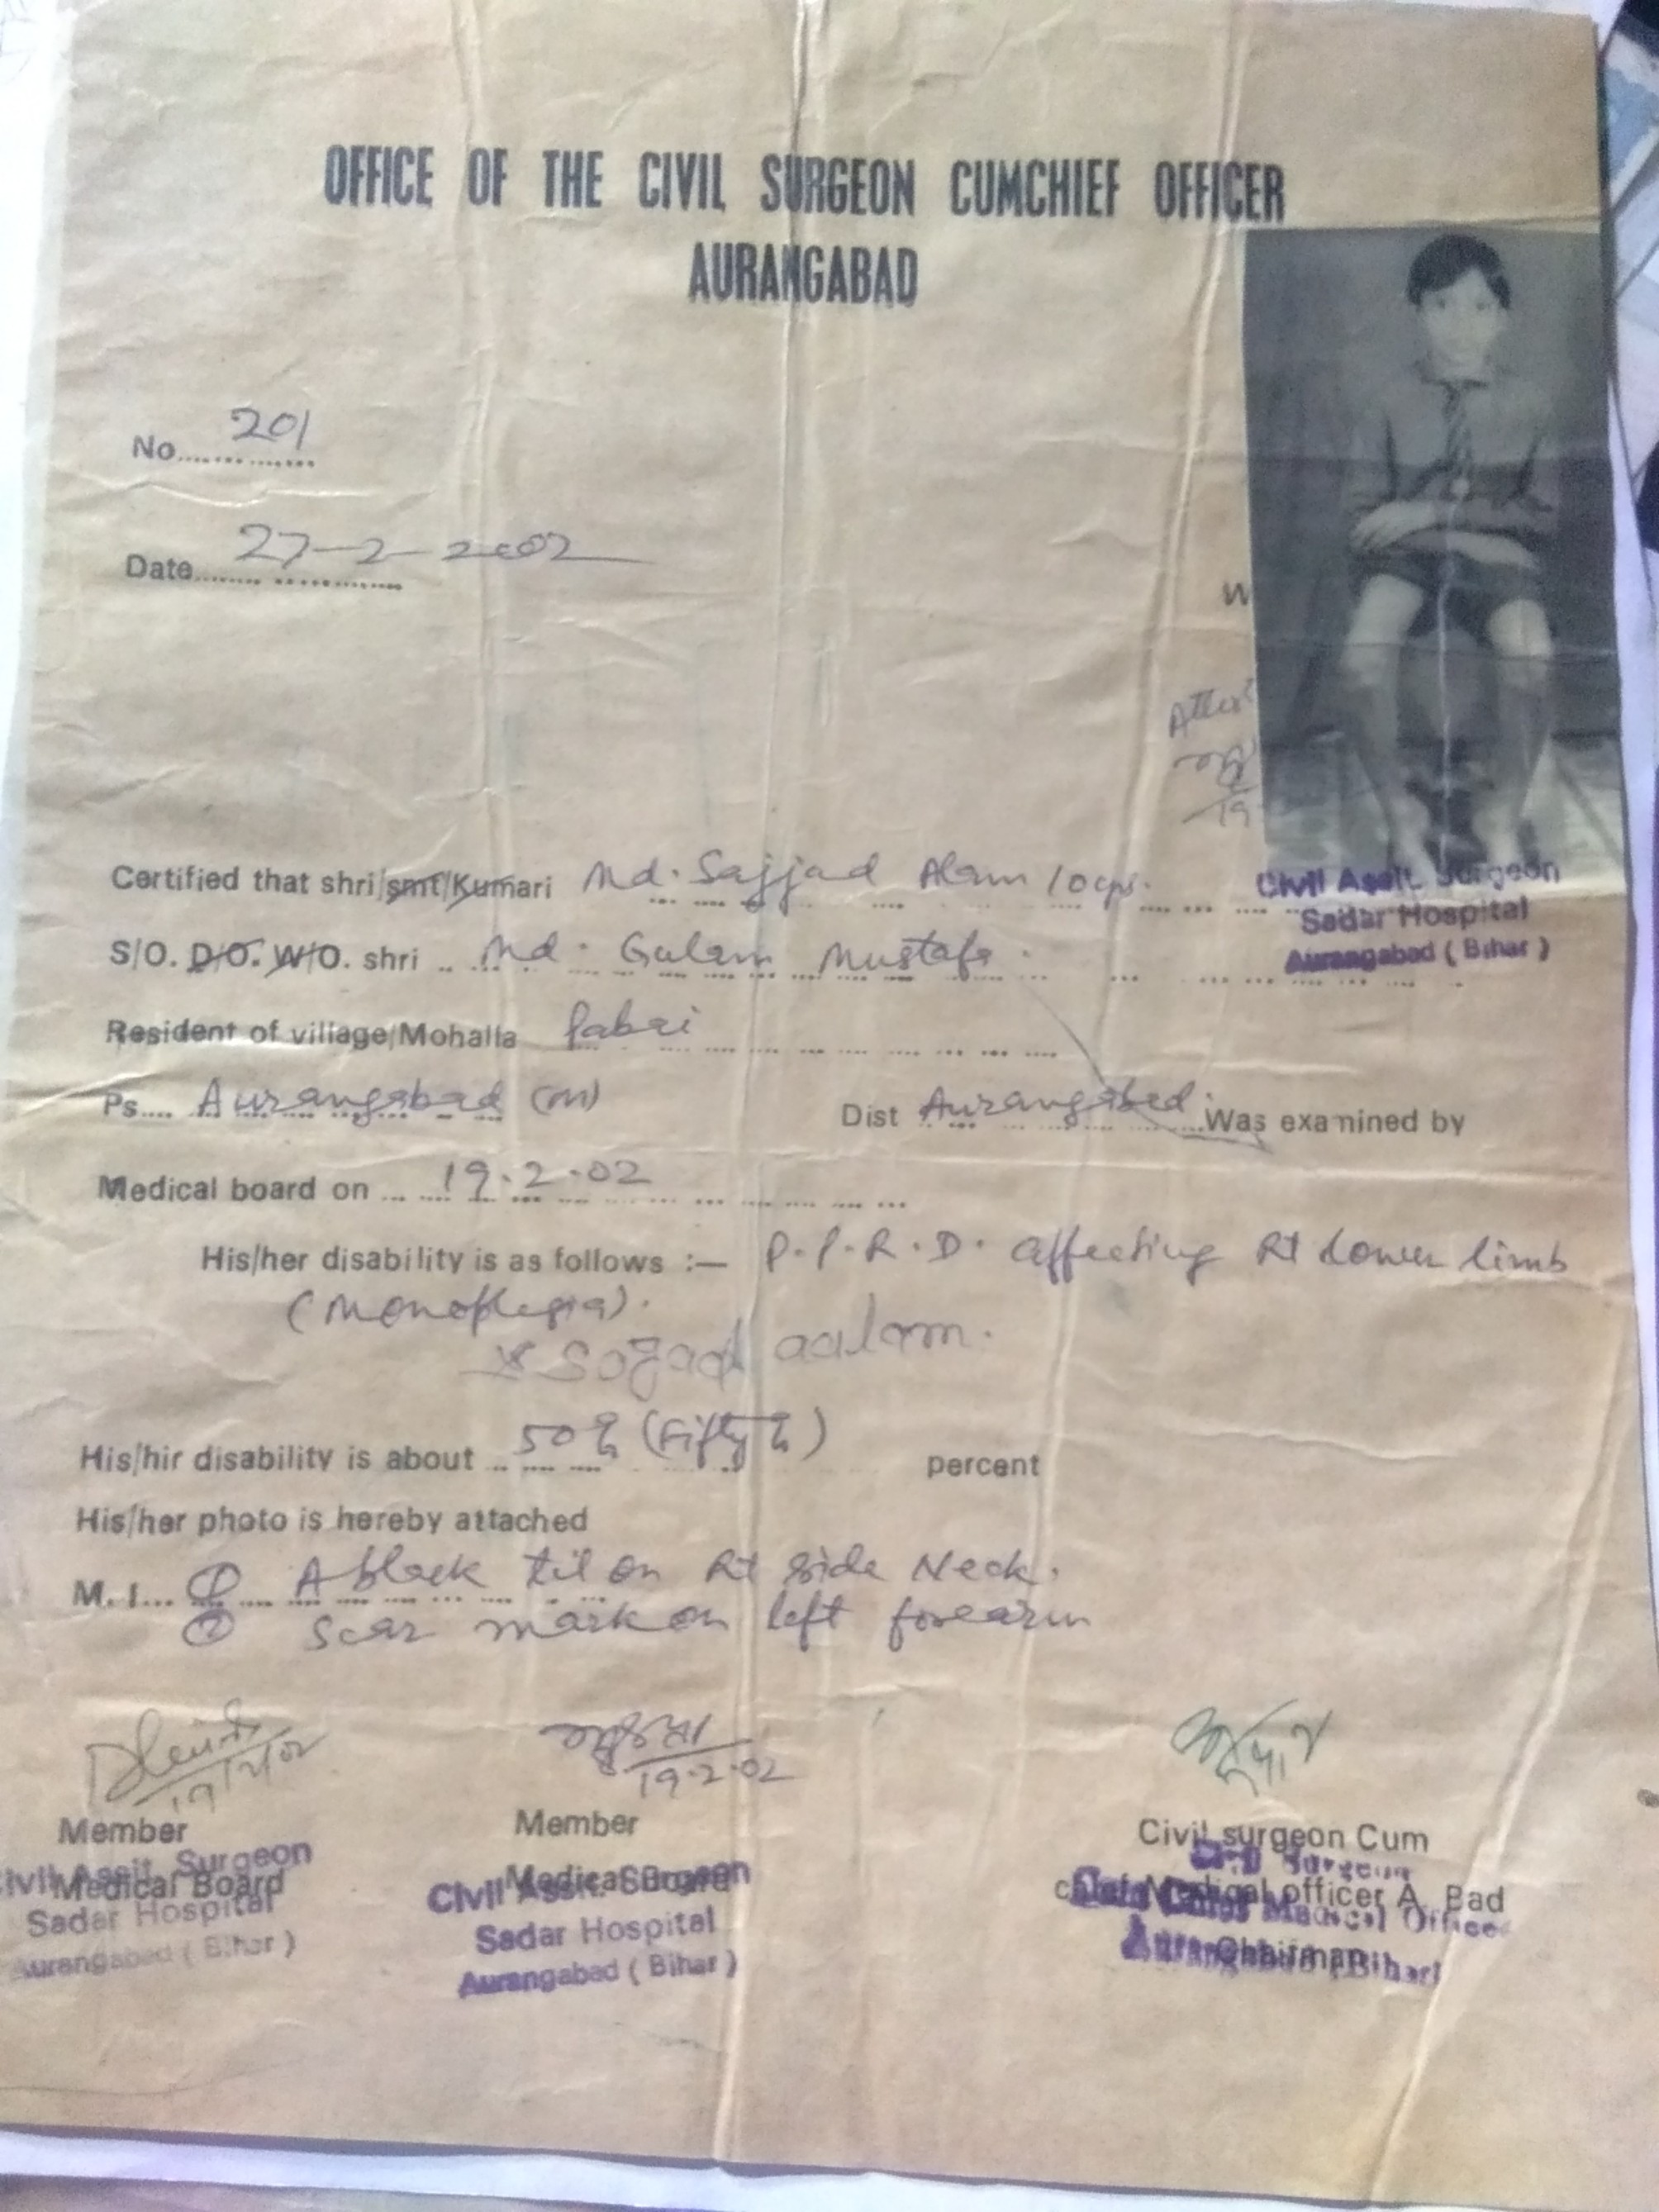 OFFICE OF THE CIVIL SURGEON CUMCHIEF OFFICER
AURANGABAD
No. 201
Date 27-2-2002
W
Attes
19
Certified that shri/smt/Kumari Md. Sajjad Alam 10 yrs.
Civil Assit. Surgeon
Sadar Hospital
Aurangabad ( Bihar )
S/O. D/O. W/O. shri Md. Gulam Mustafa.
Resident of village/Mohalla Pabai
Ps. Aurangabad (M) Dist Aurangabad. Was examined by
Medical board on 19.2.02
His/her disability is as follows :— P.P.R.D. affecting Rt Lower limb
(Monoplegia).
Sajad aalam.
His/hir disability is about 50% (Fifty %) percent
His/her photo is hereby attached
M. I. ① A black til on Rt side Neck.
② Scar mark on left forearm
19/2/02
19.2.02
Member Member Civil surgeon Cum
Medical Board Medical Board chief Medical officer A. Bad
Chairman
Civil Assit. Surgeon
Sadar Hospital
Aurangabad ( Bihar )
Civil Assit. Surgeon
Sadar Hospital
Aurangabad ( Bihar )
Civil Surgeon
Cum Chief Medical Officer
Aurangabad (Bihar)